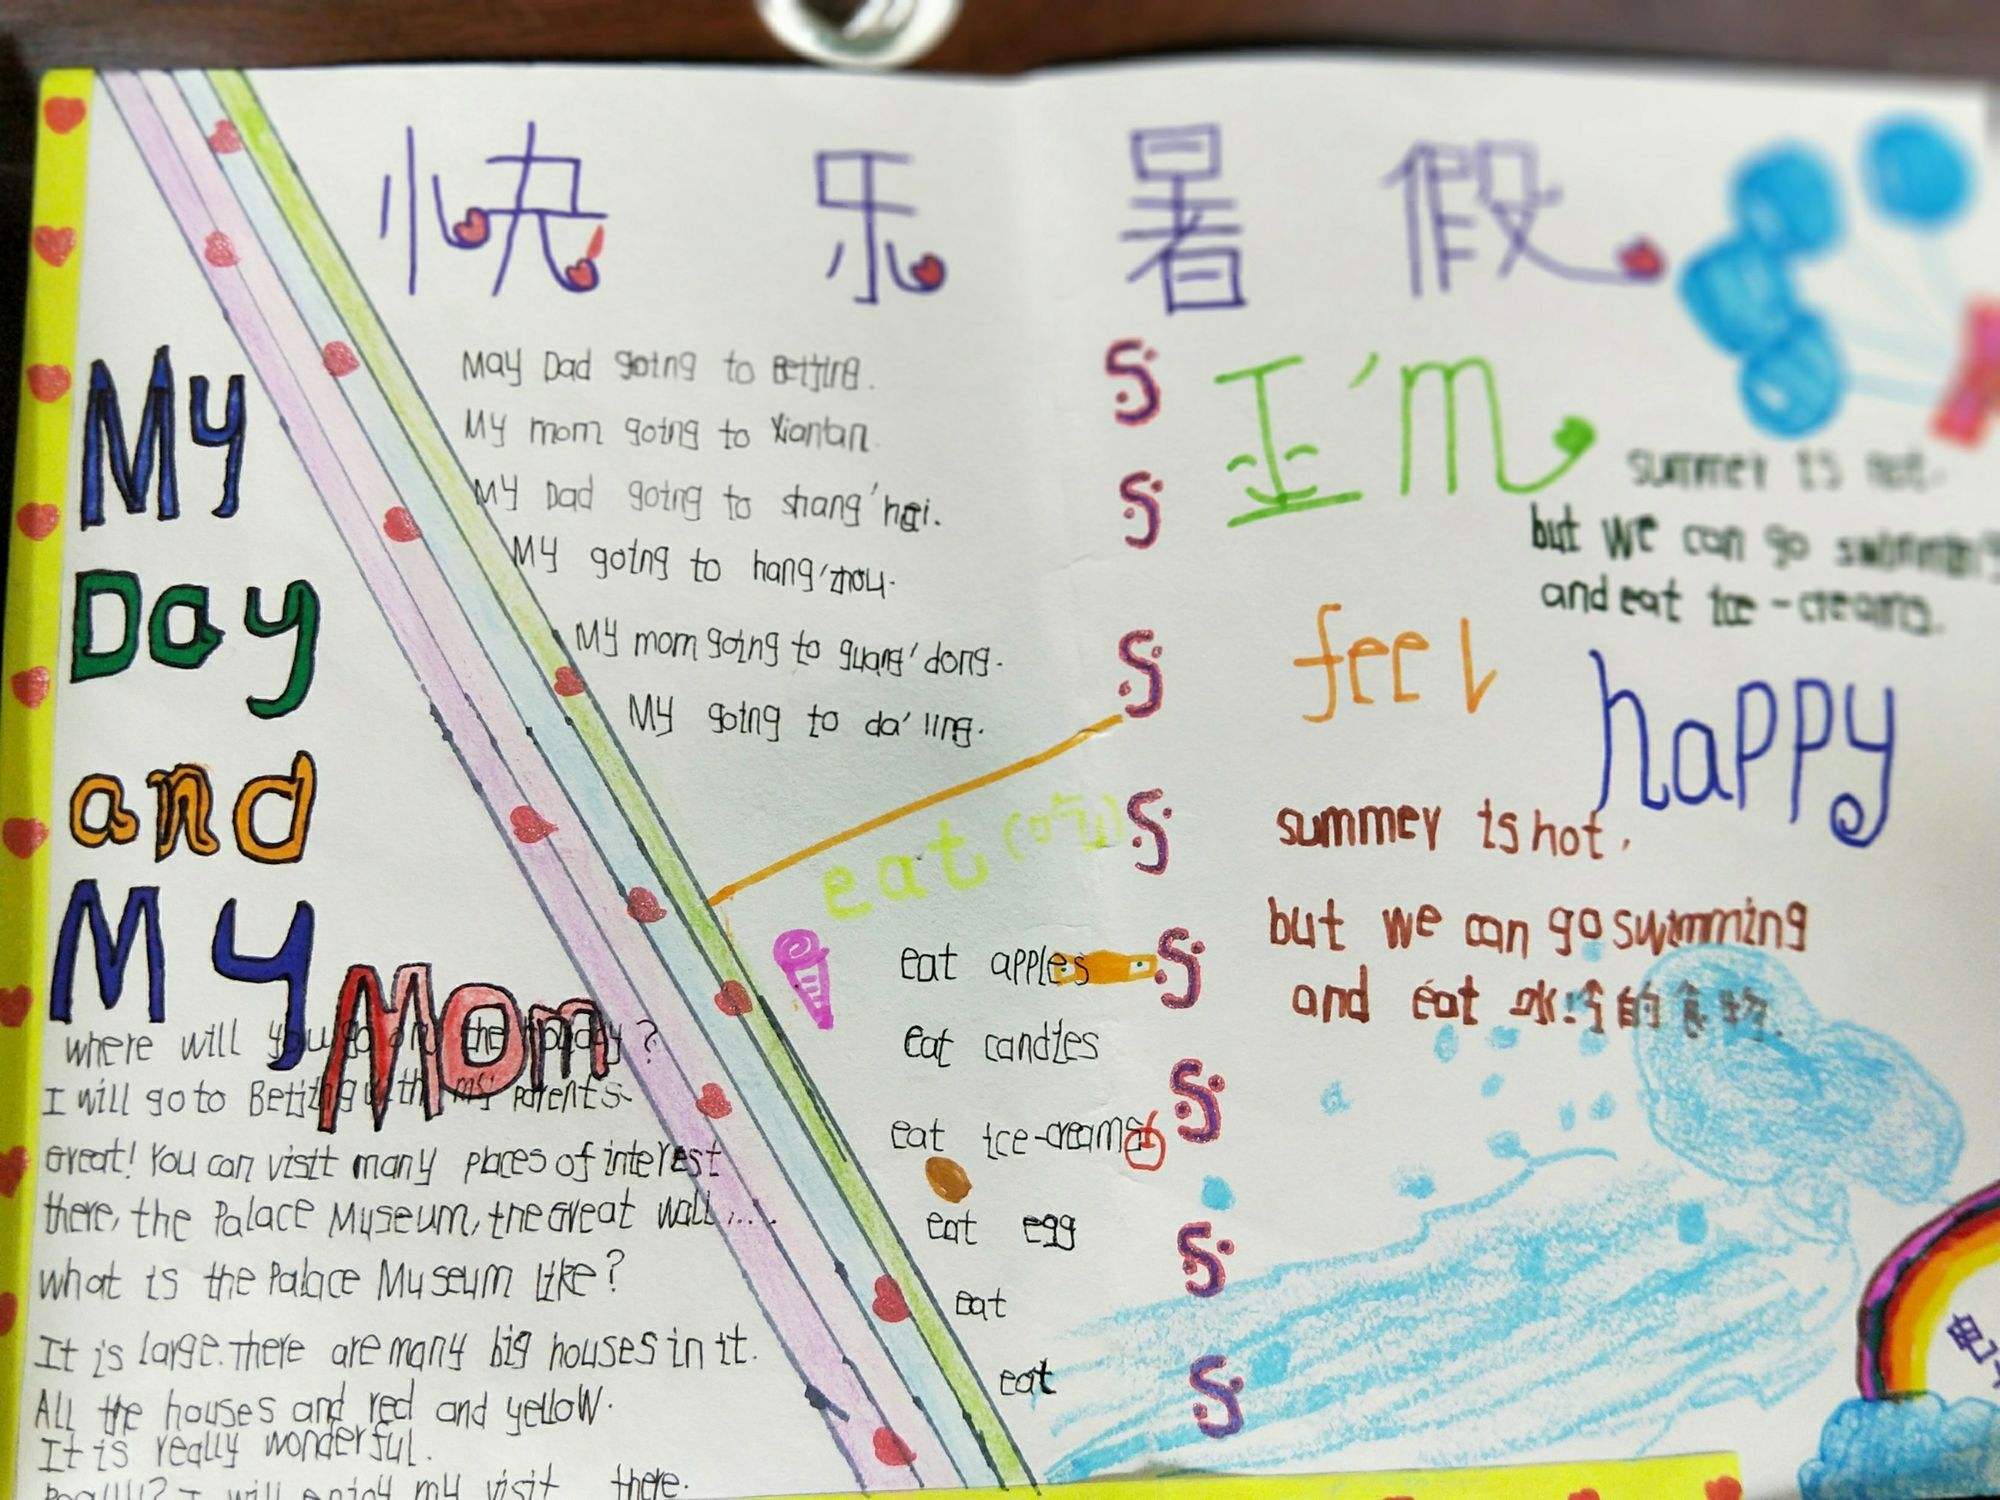 快乐暑假
My
Day
and
My
Mom
May Dad going to Beijing.
My mom going to Xiantan.
My Dad going to shang'hai.
My going to hang'zhou.
My mom going to guang'dong.
My going to da'ling.
eat (吃)
eat apples
eat candies
eat ice-creams
eat egg
eat
eat
where will you go on the holiday?
I will go to Beijing with my parents.
Great! You can visit many places of interest
there, the Palace Museum, the Great wall....
what is the Palace Museum like?
It is large. There are many big houses in it.
All the houses and red and yellow.
It is really wonderful.
I will enjoy my visit there.
I'm
feel
happy
summer is hot.
but we can go swimming
and eat ice-creams.
summer is hot.
but we can go swimming
and eat 冰冷的食物.